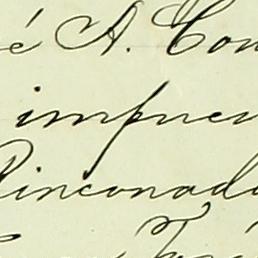 é A. Con
impues
Rinconada